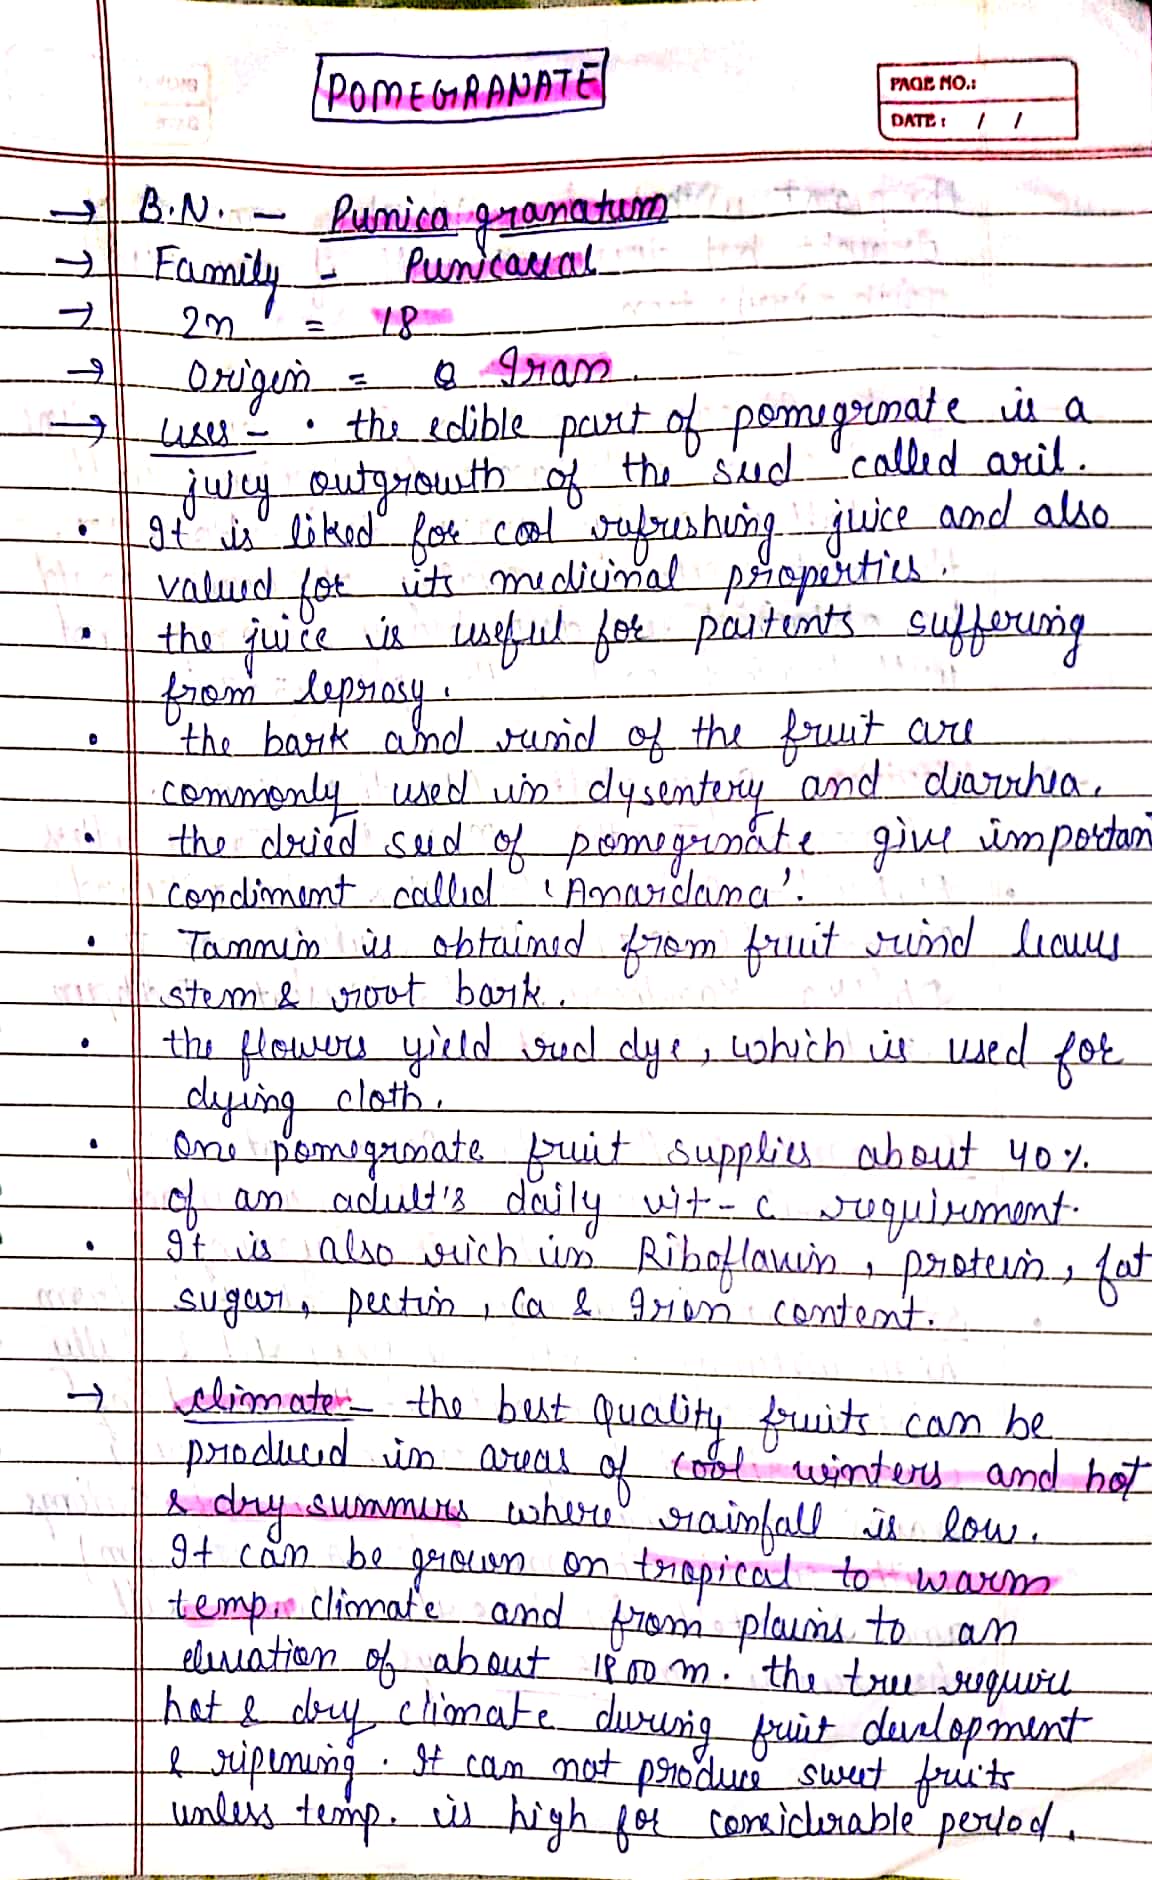 POMEGRANATE
PAGE NO.:
DATE: / /
→ B.N. - Punica granatum
→ Family - Punicaceal
→ 2n = 18
→ Origin = Iran.
→ uses - • the edible part of pomegrnate is a
juicy outgrowth of the seed called aril.
• It is liked for cool refreshing juice and also
valued for its medicinal properties.
• the juice is useful for paitents suffering
from leprosy.
• the bark and rind of the fruit are
commonly used in dysentery and diarrhea.
• the dried seed of pomegrnate give importan
condiment called 'Anardana'.
• Tannin is obtained from fruit rind leaves
stem & root bark.
• the flowers yield red dye, which is used for
dying cloth.
• One pomegrnate fruit supplies about 40%
of an adult's daily vit-c requirement.
• It is also rich in Riboflavin, protein, fat
sugar, pectin, Ca & Iron content.
→ climate - the best quality fruits can be
produced in areas of cool winters and hot
& dry summers where rainfall is low.
It can be grown on tropical to warm
temp. climate and from plains to an
elevation of about 1800 m. the tree require
hot & dry climate during fruit development
& ripening. It can not produce sweet fruits
unless temp. is high for considerable period.